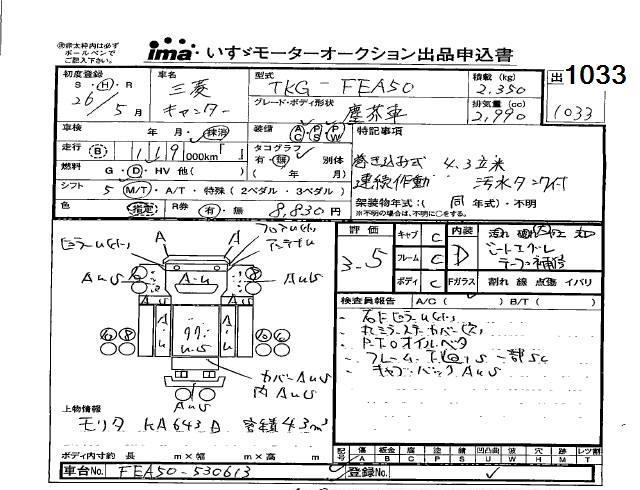 ※非太枠内は必ず
ボールペンで
ご記入下さい。
ima いすゞモーターオークション出品申込書
出1033
1033
初度登録 S・H・R 26年 5月
車名 三菱 キャンター
型式 TKG-FEA50
グレード・ボディ形状 塵芥車
積載(kg) 2,350
排気量(cc) 2,990
車検 年 月・抹消
装備 AC PS PW
特記事項
走行 B 119 000km
タコグラフ 有・無 別体
( 年 月)
燃料 G・D・HV 他( )
巻き込み式 4.3立米
連続作動 汚水タンク付
シフト 5 M/T・A/T・特殊(2ペダル・3ペダル)
架装物年式:( 同 年式)・不明
※不明の場合は、不明に○をする。
色 指定
R券 有・無 8,830円
ミラーU(小)
フロアU(小)
A A
AU5 A-U AU5
AU5
カバーAU5
内AU5
AU5
評価 3.5
キャブ C
フレーム C
ボディ C
内装 D
シートエグレ
テープ補修
Fガラス 割れ 線 点傷 イバリ
検査員報告 A/C( ) B/T( )
- 右下ミラーU(小)
- 左ミラーステーカバーU(大)
- P.T.Oオイルベタ
- フレーム下回りS一部SC
- キャブバックAU5
上物情報
モリタ KA643D 容積4.3m³
ボディ内寸約 長 m×幅 m×高 m
記号 傷 A 板金 B 腐 C 塗 P 錆 S 凹凸曲 U 波 W 穴 H 跡 M レツ割 T
車台No. FEA50-530613
登録No.